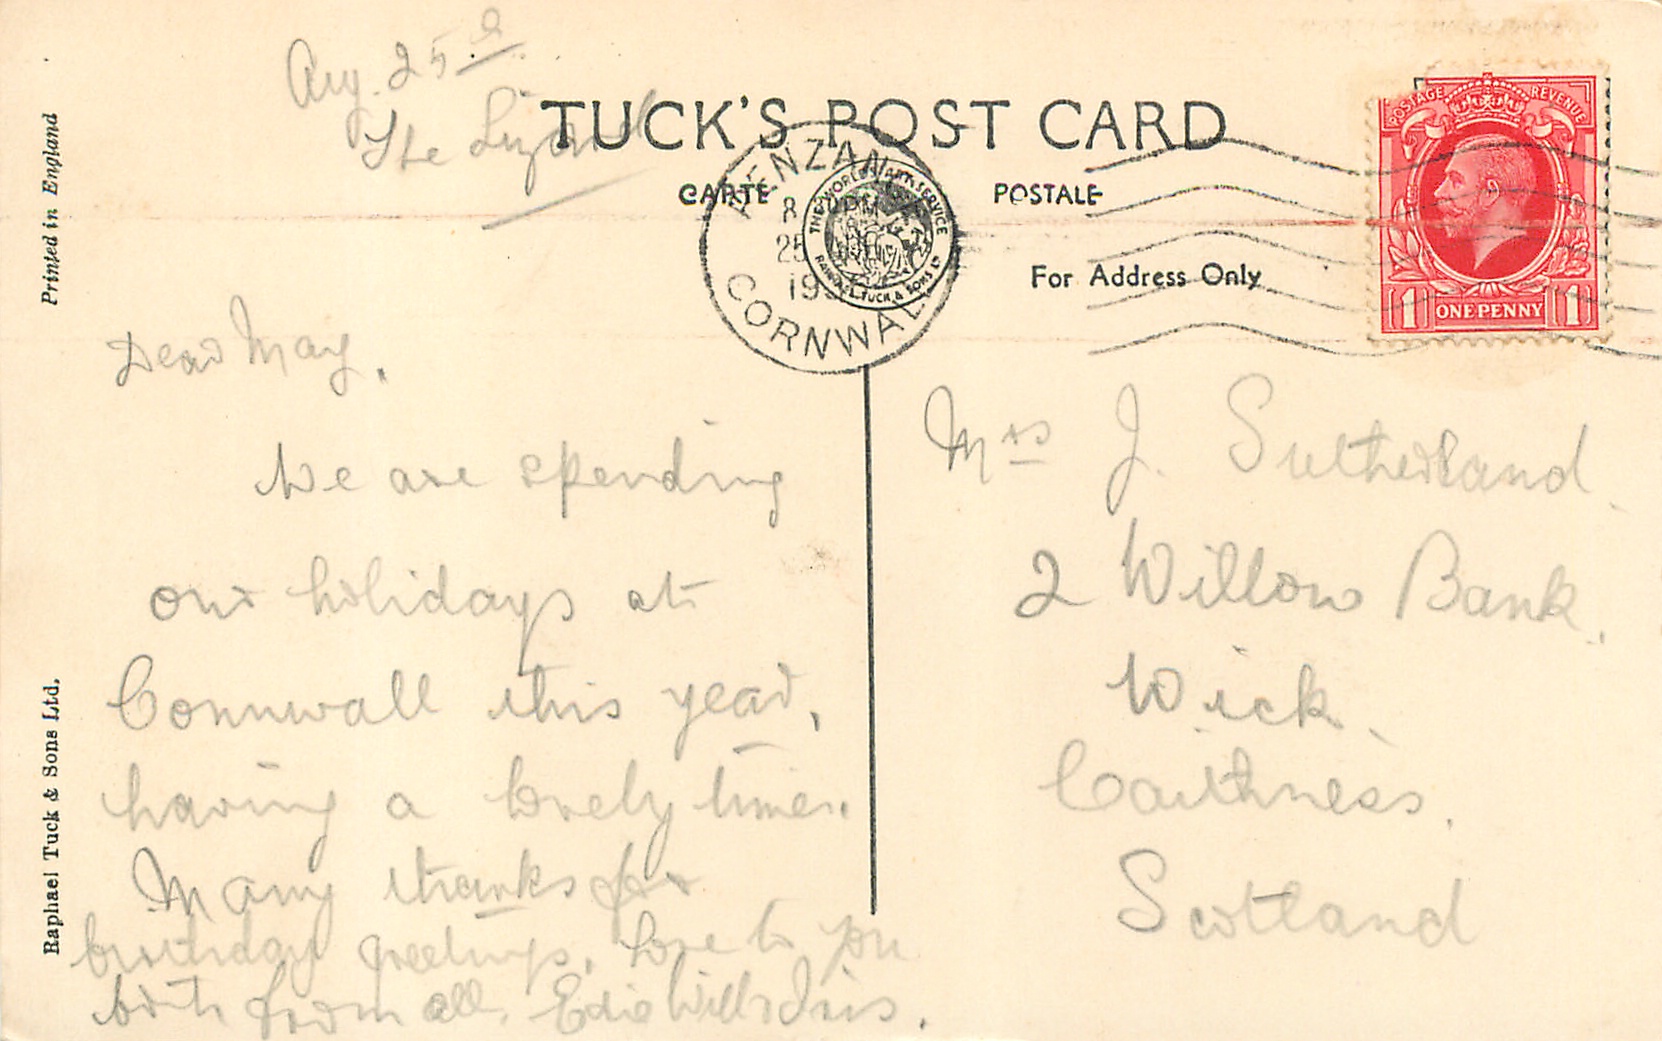 Aug. 25th
The Lizard
TUCK'S POST CARD
CARTE POSTALE
For Address Only
PENZAN
8 PM
25
19
CORNWAL
THE WORLD'S ART SERVICE
RAPHAEL TUCK & SONS LD
POSTAGE REVENUE
1 ONE PENNY 1
Printed in England
Raphael Tuck & Sons Ltd.
Dear May,
We are spending
our holidays at
Cornwall this year,
having a lovely time.
Many thanks for
birthday greetings. Love to you
both from all, Edie Will & Iris.
Mrs J. Sutherland.
2 Willow Bank,
Wick.
Caithness.
Scotland